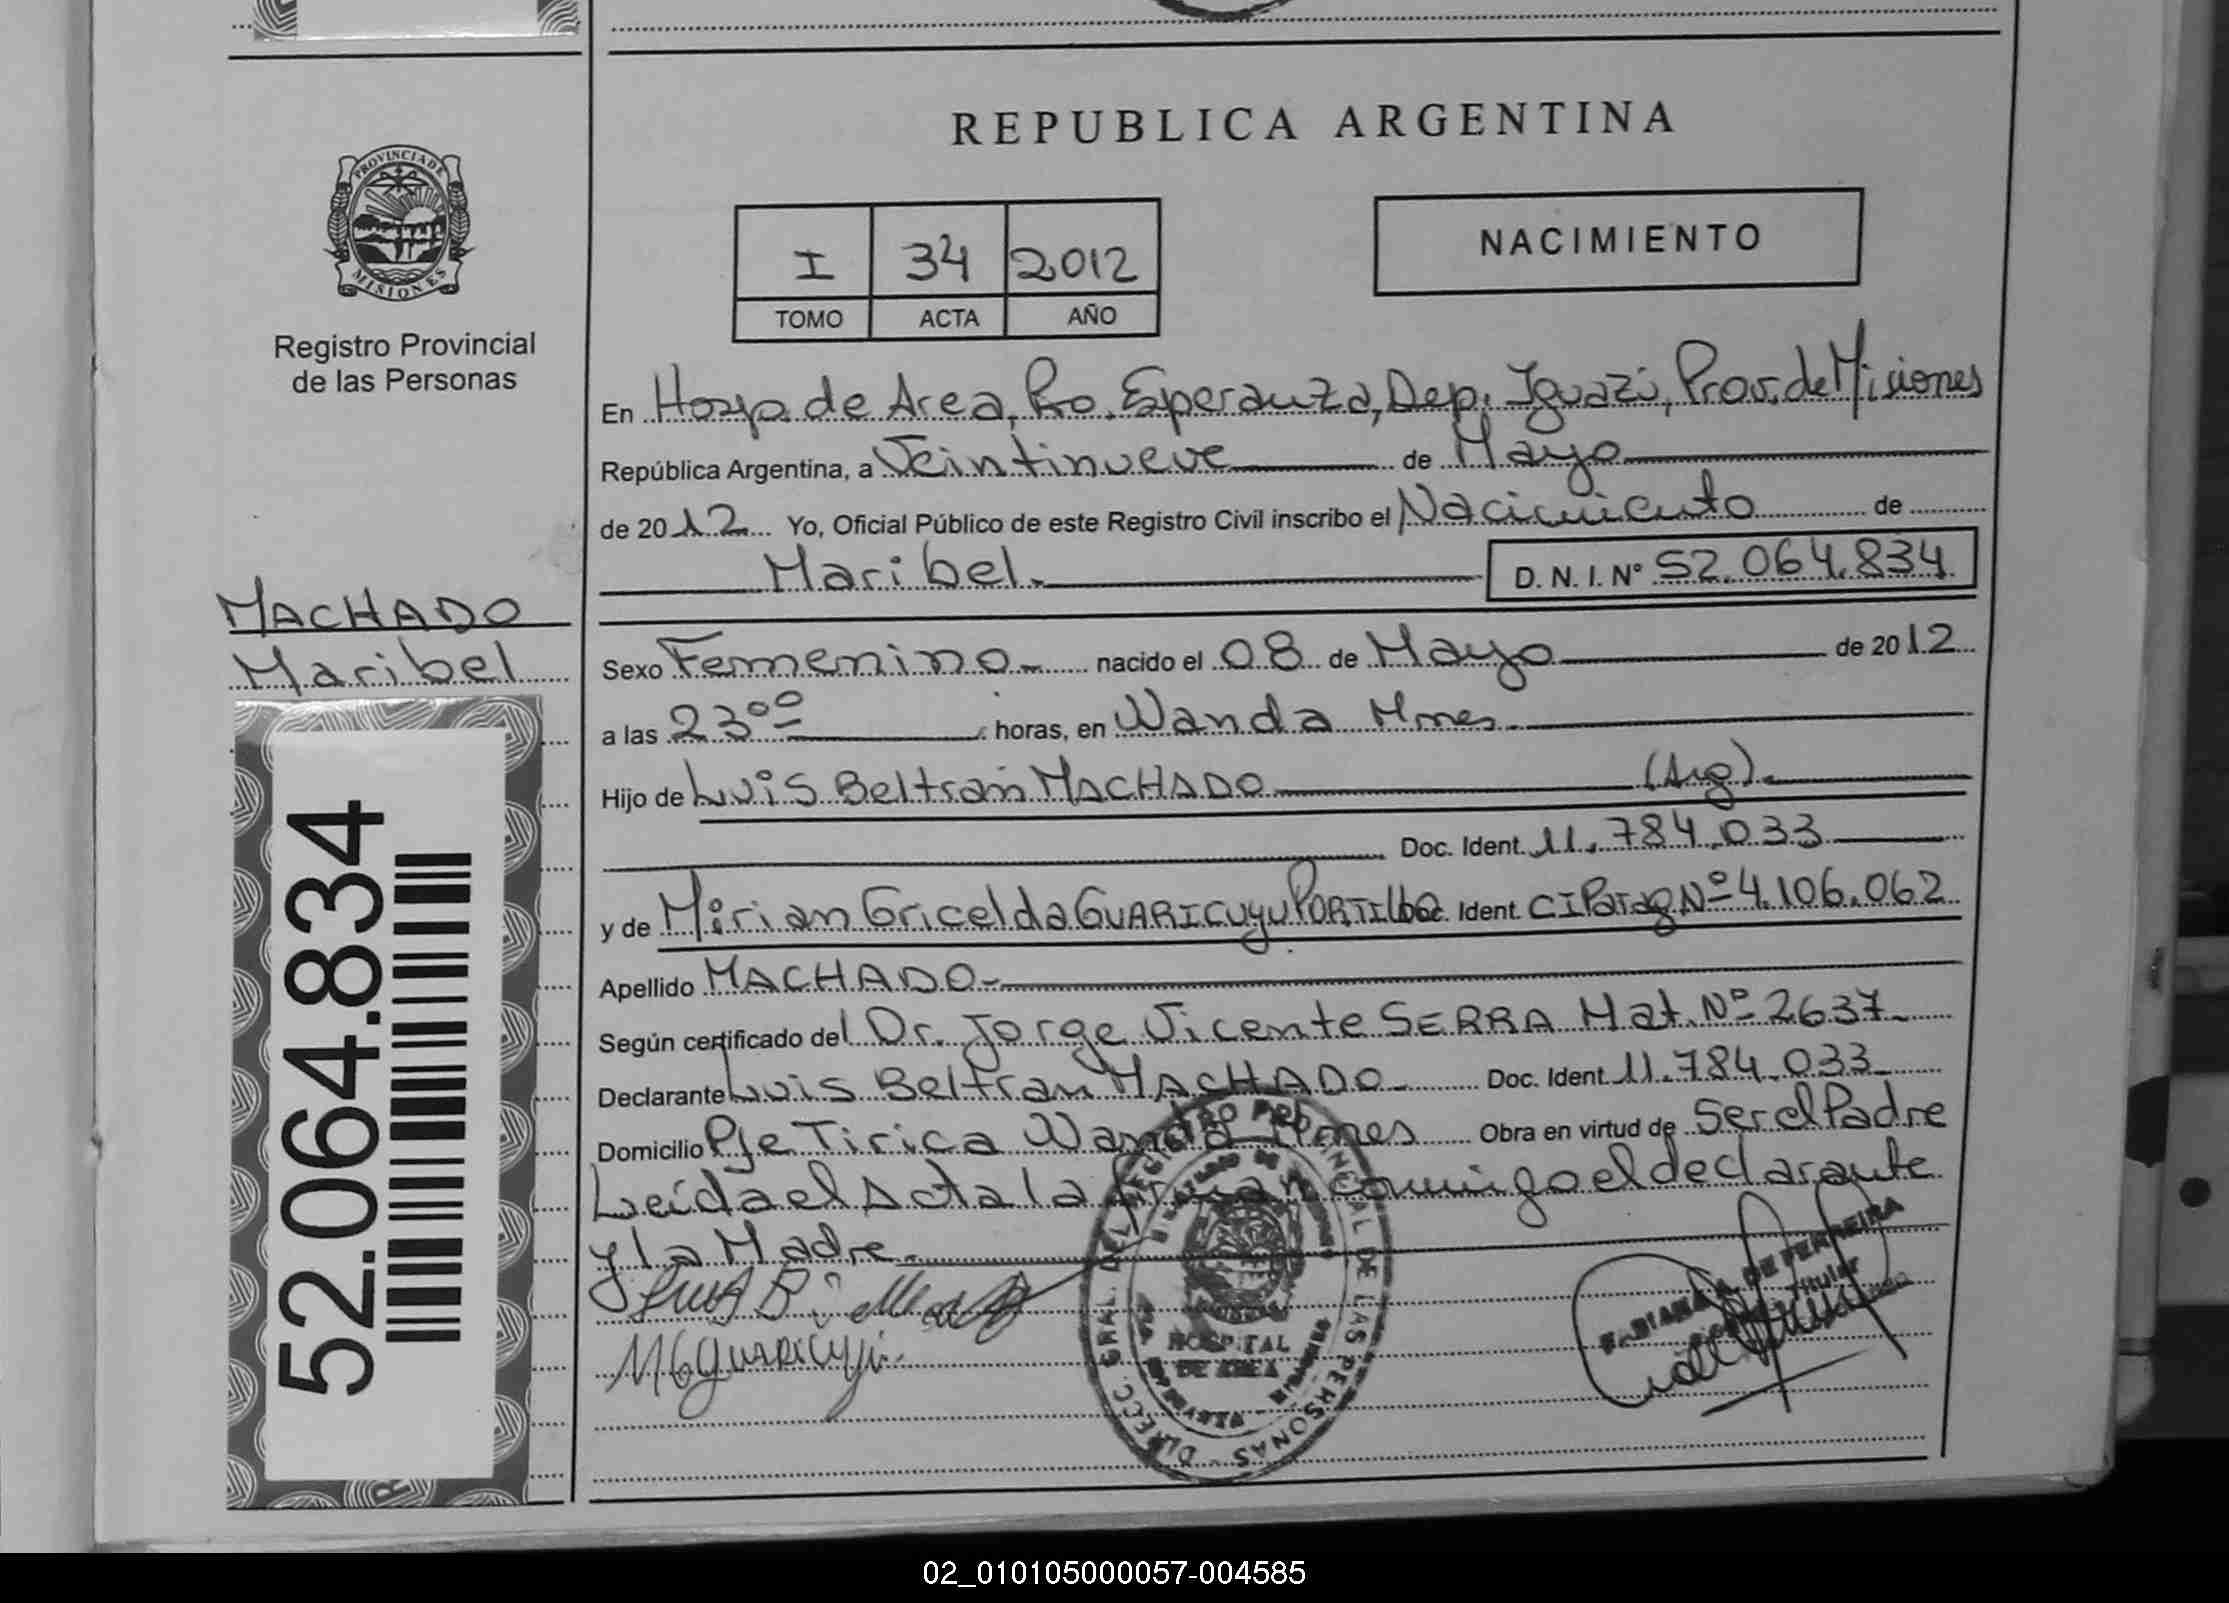 REPUBLICA ARGENTINA
PROVINCIA DE
MISIONES
Registro Provincial
de las Personas
I 34 2012
TOMO ACTA AÑO
NACIMIENTO
En Hosp. de Area, Pto. Esperanza, Dep. Iguazú, Prov. de Misiones
República Argentina, a Veintinueve de Mayo
de 2012 Yo, Oficial Público de este Registro Civil inscribo el Nacimiento de
Maribel. D. N. I. Nº 52.064.834
MACHADO
Maribel
52.064.834
Sexo Femenino nacido el 08 de Mayo de 2012
a las 23ºº horas, en Wanda Mnes.
Hijo de Luis Beltran MACHADO (Arg).
Doc. Ident. 11.784.033
y de Mirian Gricelda GUARICUYU PORTILLO Doc. Ident. CI Parag Nº 4.106.062
Apellido MACHADO
Según certificado del Dr. Jorge Vicente SERRA Mat. Nº 2637
Declarante Luis Beltran MACHADO Doc. Ident. 11.784.033
Domicilio Pje Tirica Wanda Mnes Obra en virtud de Ser el Padre
Leída el Acta la firman conmigo el declarante
y la Madre.
DIRECC. GRAL. DEL REGISTRO PROVINCIAL DE LAS PERSONAS
HOSPITAL
DE AREA
MGGuaricuyu.
DE FERREIRA
Titular
02_010105000057-004585